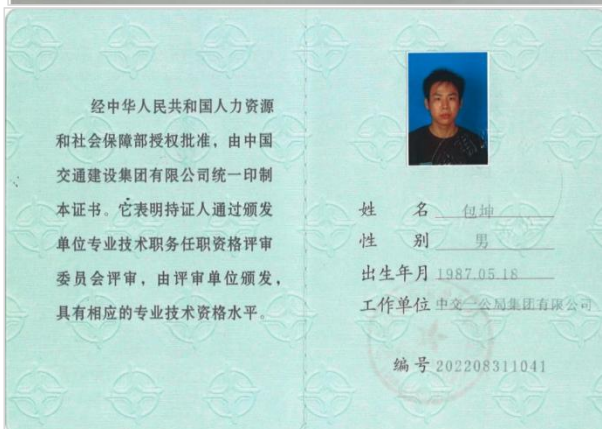 经中华人民共和国人力资源
和社会保障部授权批准，由中国
交通建设集团有限公司统一印制
本证书。它表明持证人通过颁发
单位专业技术职务任职资格评审
委员会评审，由评审单位颁发，
具有相应的专业技术资格水平。
姓 名 包坤
性 别 男
出生年月 1987.05.18
工作单位 中交一公局集团有限公司
编号 202208311041